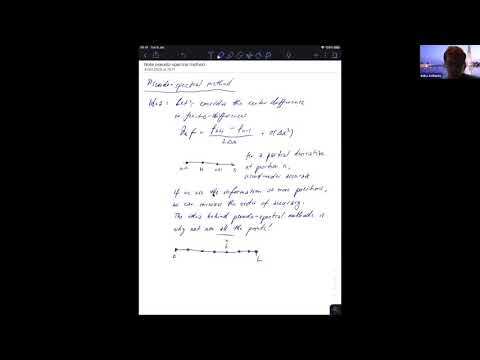 Note pseudo-spectral method
Pseudo-spectral method
Idea: Let's consider the center difference
in finite-differences
∂ₓf = (fₙ₊₁ − fₙ₋₁) / 2Δx + O(Δx²)
for a partial derivative
n-1 n n+1
at position n,
second-order accurate
If we use the information at more positions,
we can increase the order of accuracy.
The idea behind pseudo-spectral methods is
why not use all the points!
L